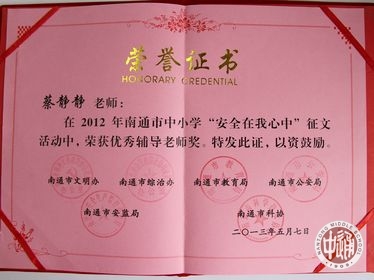 荣誉证书
HONORARY CREDENTIAL
蔡静静 老师：
在 2012 年南通市中小学“安全在我心中”征文
活动中，荣获优秀辅导老师奖。特发此证，以资鼓励。
南通市文明办 南通市综治办 南通市教育局 南通市公安局
南通市安监局 南通市科协
二〇一三年五月七日
NANTONG MIDDLE SCHOOL
1909